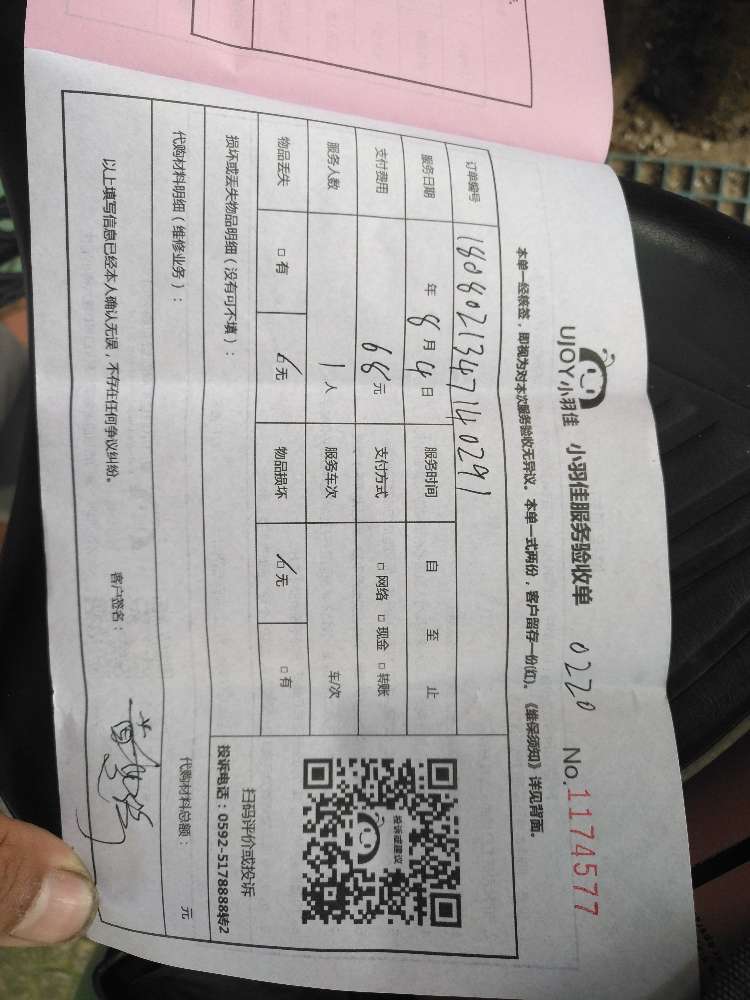 UJOY小羽佳 小羽佳服务验收单 0220 No.1174577
本单一经核签，即视为对本次服务验收无异议。本单一式两份，客户留存一份(红)。《维保须知》详见背面。
订单编号 1808021347140291
服务日期 年 8 月 4 日 服务时间 自 至 止
支付费用 68 元 支付方式 □ 网络 □ 现金 □ 转账
服务人数 1 人 服务车次 车/次
物品丢失 □ 有 □ 无 物品损坏 □ 无 □ 有
投诉或建议
扫码评价或投诉
投诉电话：0592-5178888转2
损坏或丢失物品明细（没有可不填）：
代购材料明细（维修业务）： 代购材料总额： 元
以上填写信息已经本人确认无误，不存在任何争议纠纷。 客户签名：